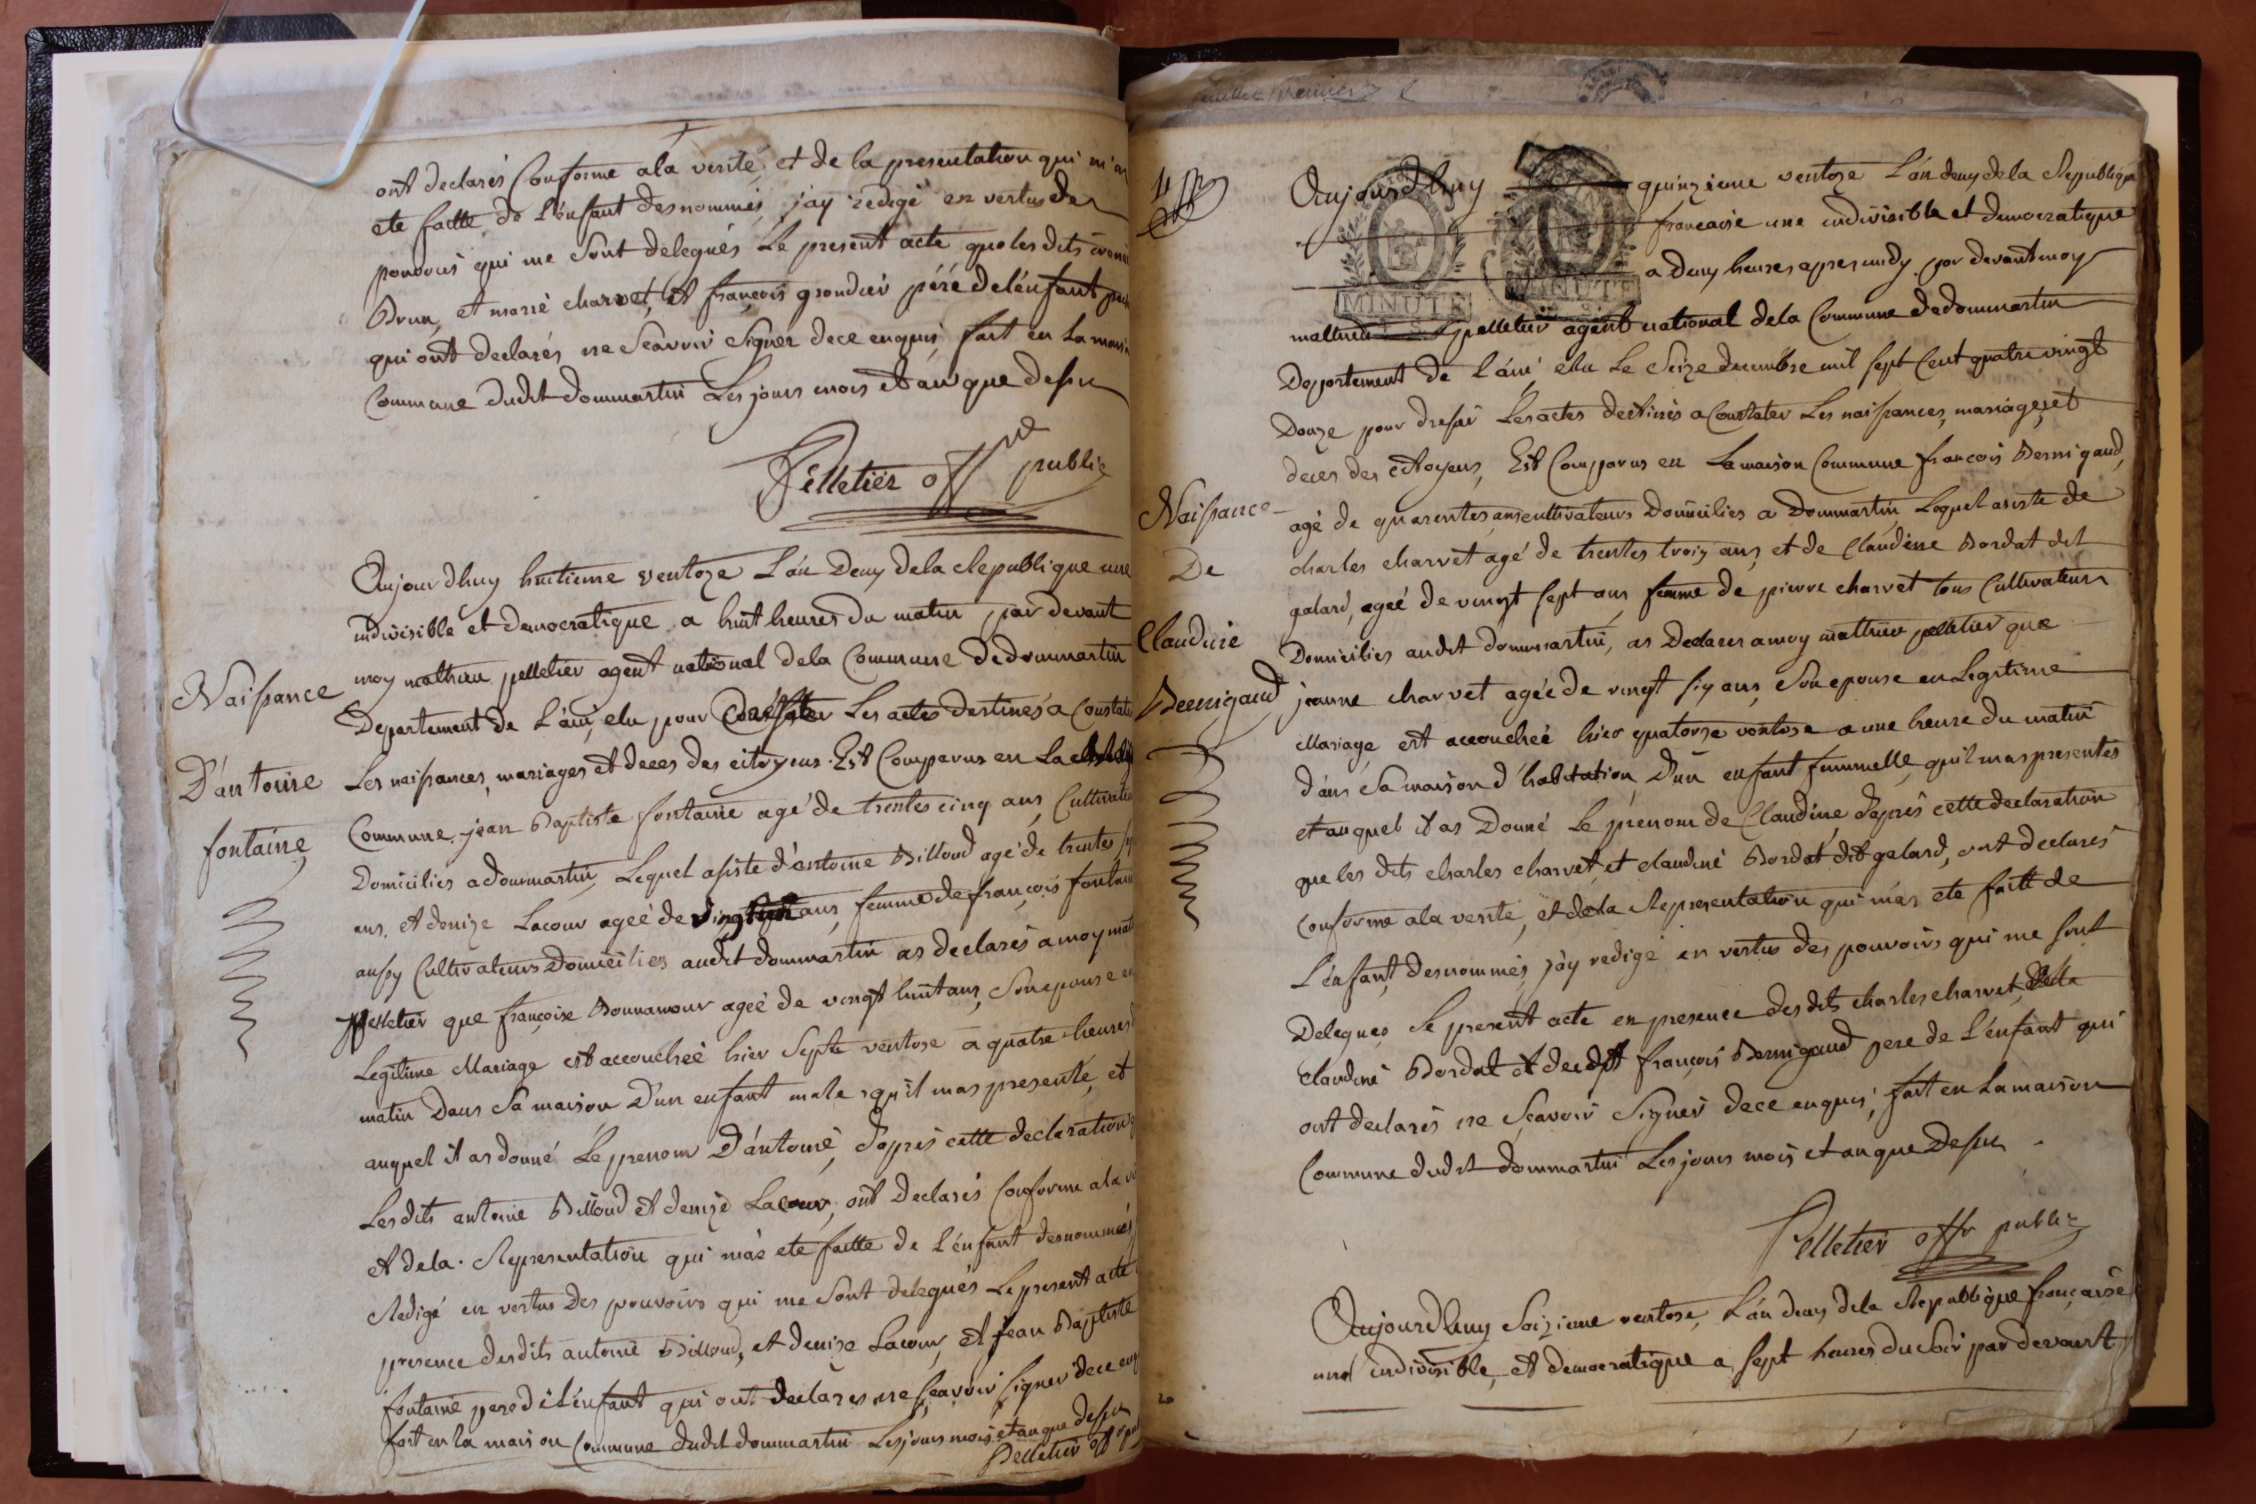 ont declarés Conforme a la verité, et de la presentation qui m'a
ete faitte de L'enfant desnommés j'ay redigé en vertus des
pouvoirs qui me Sont delegués Le present acte que les dits
Brun, et marie charvet, et françois grondier pére de l'énfant
qui ont declarés ne Scavoir Signer de ce enquis, fait en La maison
Commune dudit dommartin Les jours mois et an que dessu
Pelletier offre public
Aujourdhuy huitieme ventoze L'án Deux de la Republique une
indivisible et democratique a huit heures du matin par devant
moy mathieu pelletier agent national de la Commune de dommartin
Naissance
Departement de L'áin, elu pour Dresser Les actes destinés a Constater
D'antoine
Les naissances, mariages et deces des citoyens. Est Comparus en La
fontaine
Commune jean Baptiste fontaine agé de trentes cinq ans, Cultivateur
Domicilies a dommartin, Lequel assiste d'antoine Billoud agé de trentes
ans, et denize Lacour ageé de vingt ans, femme de françois fontaine
aussy Cultivateurs Domicilies audit dommartin as declarés a moy
pelletier que françoise Bonnamour ageé de vingt huit ans, Son epouse en
Legitime Mariage est accoucheé hier Septe ventose a quatre heures
matin Dans Sa maison D'un enfant male, qu'il m'as presenté, et
auquel il as donné Le prenom D'ántoine, d'apres cette declaration
Les dits antoine Billoud et denize Lacour, ont Declarés Conforme a la
et de la Representation qui m'ás ete faitte de L'énfant desnommés
Redigé en vertus des pouvoirs qui me Sont delegués Le present acte
presence desdits antoine Billoud, et denize Lacour, et jean Baptiste
fontaine pere de L'énfant qui ont declarés ne Scavoir Signer de ce
fait en la maison Commune dudit dommartin Les jours mois et an que dessu
Pelletier off
feuillet premier
Aujourdhuy quinzieme ventoze L'án deux de la Republique
française une indivisible et democratique
a Deux heures apres midy par devant moy
MINUTE
MINUTE
mathieu pelletier agent national de la Commune de dommartin
Departement de L'áin elu Le Seize decembre mil Sept Cent quatre vingt
Douze pour dresser Les actes destinés a Constater Les naissances, mariages, et
deces des citoyens, Est Comparus en La maison Commune françois Bernigaud,
Naissance
agé de quarentes ans cultivateurs Domicilies a Dommartin Lequel asiste de
De
charles charvet agé de trentes trois ans, et de Claudine Bordat dit
galard, ageé de vingt Sept ans femme de pierre charvet tous Cultivateurs
Claudine
Domicilies audit dommartin, as Declarer a moy mathieu pelletier que
Bernigaud
jeanne charvet agée de vingt Six ans, Son epouse en Legitime
Mariage, est accoucheé hier quatorze ventose a une heure du matin
dáns Sa maison d'habitation, D'un enfant femmelle, qu'il m'as presentés
et auquel il as Donné Le prénom de Claudine, d'aprés cette declaration
que les dits charles charvet, et claudine Bordat dit galard, ont declarés
Conforme a la verité, et de la Representation qui m'ás ete faitt de
L'énfant, desnommés, j'ay redigé en vertus des pouvoirs qui me Sont
Delegues Le present acte en presence des dits charles charvet,
claudine Bordat et dudit françois Bernigaud pere de L'énfant qui
ont declarés ne Scavoir Signer de ce enquis, fait en La maison
Commune dudit dommartin Les jours mois et an que Dessu
Pelletier offr public
Aujourdhuy Seizieme ventose, L'án deux de la Republique française
une indivisible, et democratique a Sept heures du Soir par devant